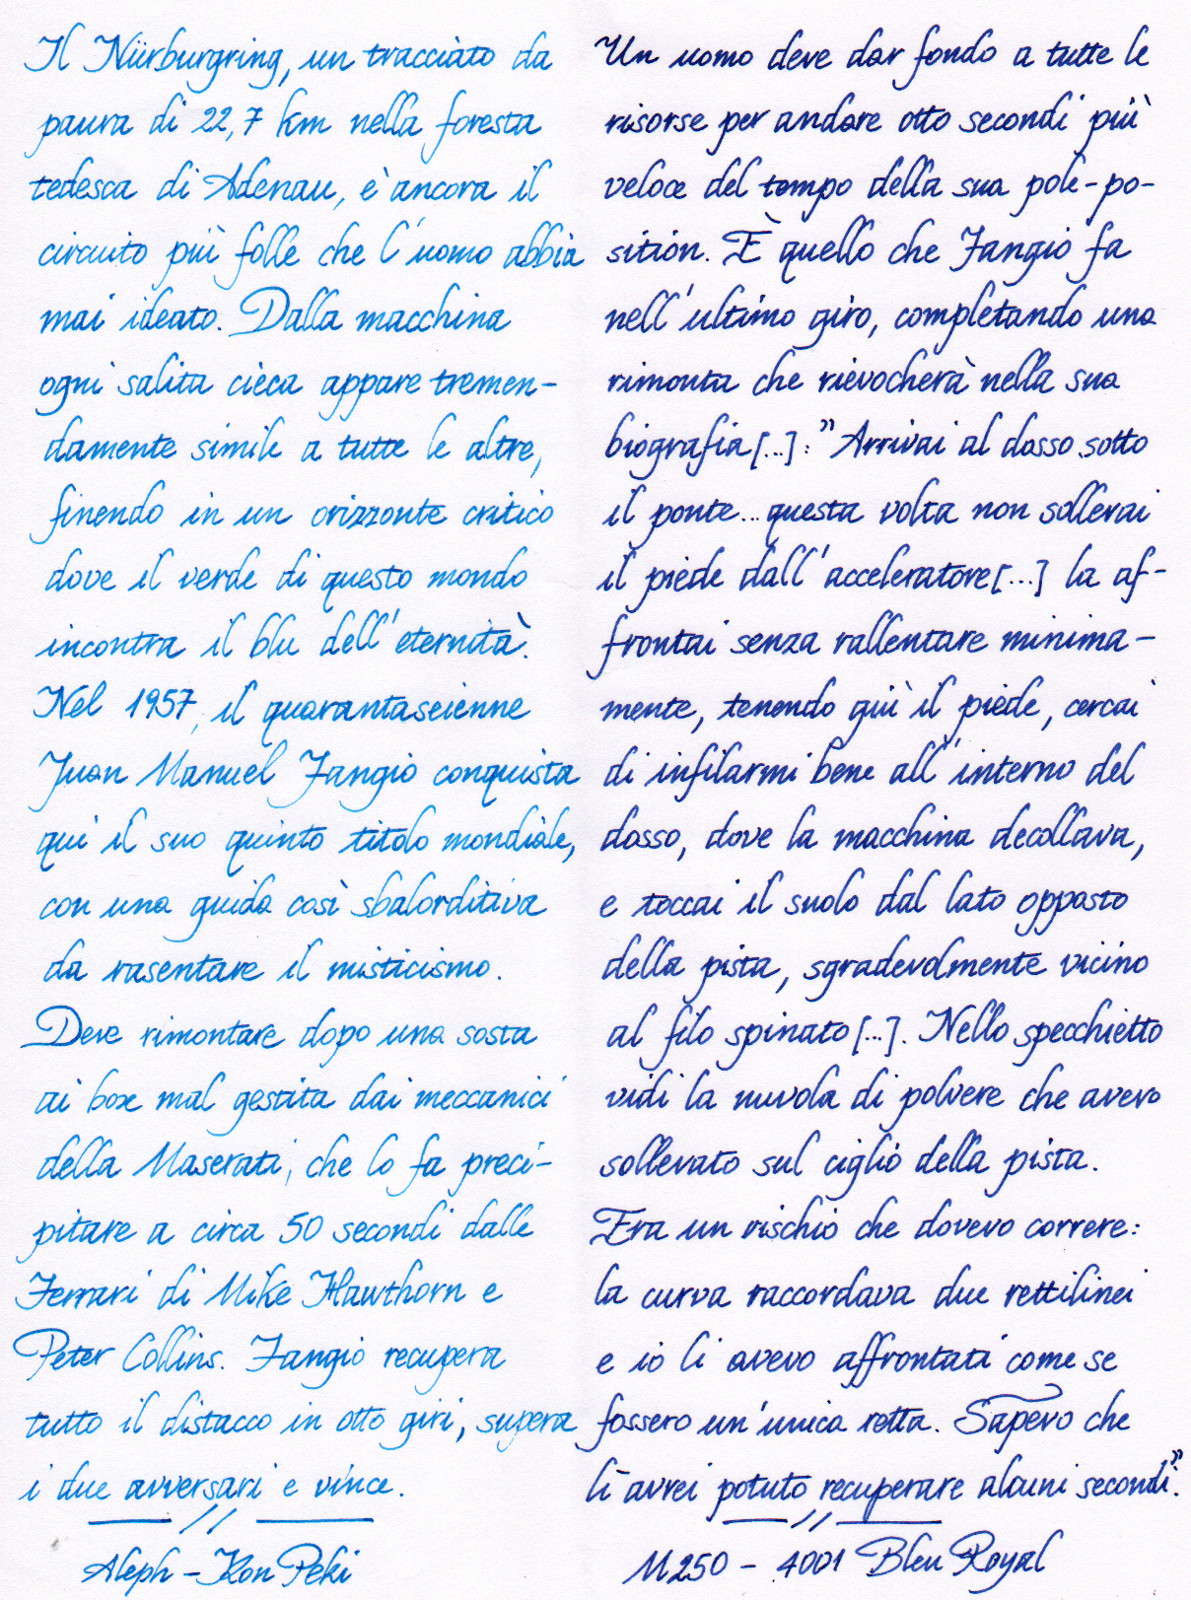 Il Nürburgring, un tracciato da
paura di 22,7 km nella foresta
tedesca di Adenau, è ancora il
circuito più folle che l'uomo abbia
mai ideato. Dalla macchina
ogni salita cieca appare tremen-
damente simile a tutte le altre,
finendo in un orizzonte critico
dove il verde di questo mondo
incontra il blu dell'eternità.
Nel 1957, il quarantaseienne
Juan Manuel Fangio conquista
qui il suo quinto titolo mondiale,
con una guida così sbalorditiva
da rasentare il misticismo.
Deve rimontare dopo una sosta
ai box mal gestita dai meccanici
della Maserati, che lo fa preci-
pitare a circa 50 secondi dalle
Ferrari di Mike Hawthorn e
Peter Collins. Fangio recupera
tutto il distacco in otto giri, supera
i due avversari e vince.
Aleph - Kon Peki
Un uomo deve dar fondo a tutte le
risorse per andare otto secondi più
veloce del tempo della sua pole-po-
sition. È quello che Fangio fa
nell'ultimo giro, completando una
rimonta che rievocherà nella sua
biografia [...]: "Arrivai al dosso sotto
il ponte... questa volta non sollevai
il piede dall'acceleratore [...] la af-
frontai senza rallentare minima-
mente, tenendo giù il piede, cercai
di infilarmi bene all'interno del
dosso, dove la macchina decollava,
e toccai il suolo dal lato opposto
della pista, sgradevolmente vicino
al filo spinato [...]. Nello specchietto
vidi la nuvola di polvere che avevo
sollevato sul ciglio della pista.
Era un rischio che dovevo correre:
la curva raccordava due rettilinei
e io li avevo affrontati come se
fossero un'unica retta. Sapevo che
lì avrei potuto recuperare alcuni secondi".
M250 - 4001 Bleu Royal